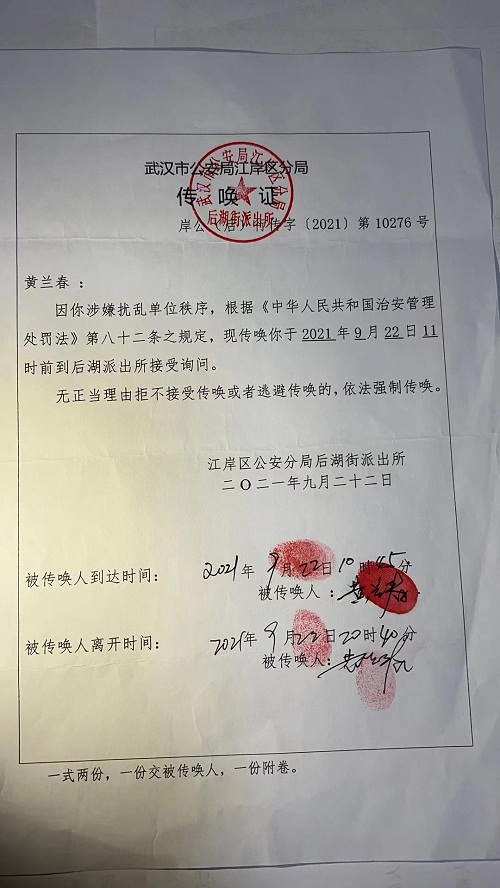 武汉市公安局江岸区分局
传唤证
岸公(后)行传字〔2021〕第 10276 号
黄兰春:
因你涉嫌扰乱单位秩序,根据《中华人民共和国治安管理
处罚法》第八十二条之规定,现传唤你于 2021 年 9 月 22 日 11
时前到后湖派出所接受询问。
无正当理由拒不接受传唤或者逃避传唤的,依法强制传唤。
江岸区公安分局后湖街派出所
二〇二一年九月二十二日
被传唤人到达时间: 2021 年 9 月 22 日 10 时 45 分
被传唤人:
被传唤人离开时间: 2021 年 9 月 22 日 20 时 40 分
被传唤人:
一式两份,一份交被传唤人,一份附卷。
武汉市公安局江岸区分局
后湖街派出所